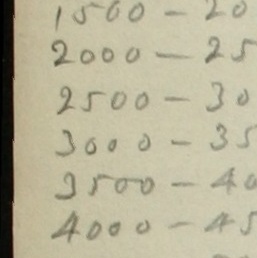 1500 – 20
2000 – 25
2500 – 30
3000 – 35
3500 – 40
4000 – 45